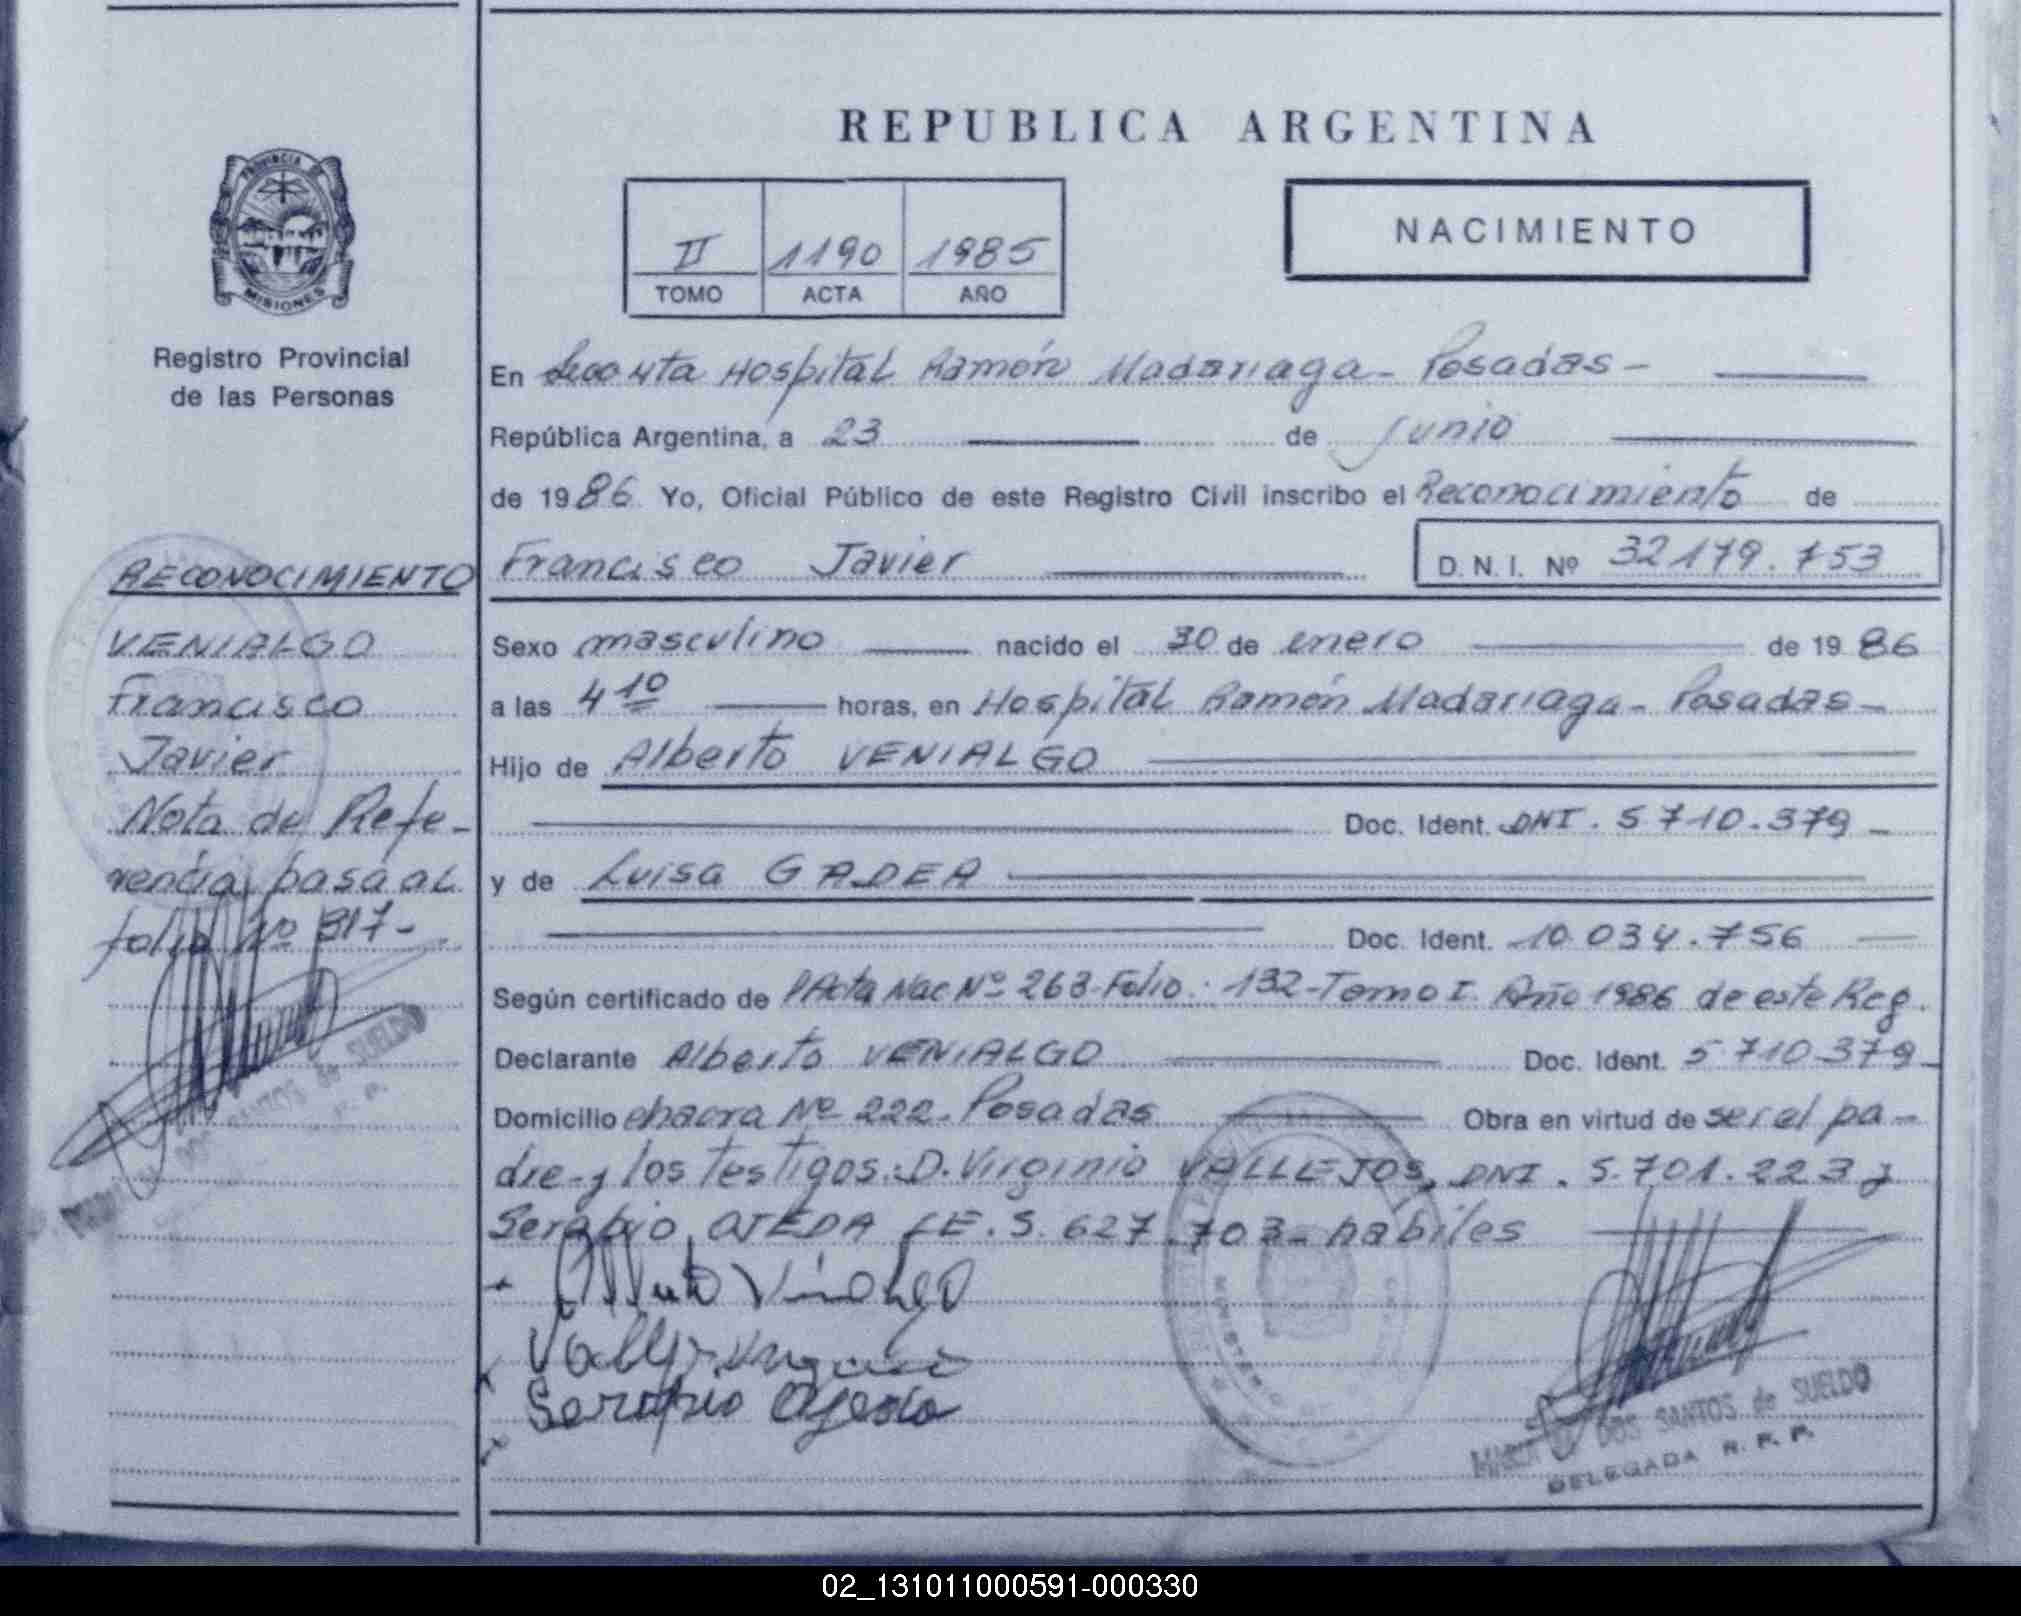 REPUBLICA ARGENTINA
PROVINCIA DE
MISIONES
Registro Provincial
de las Personas
II 1190 1985
TOMO ACTA AÑO
NACIMIENTO
En Hospital Ramón Madariaga - Posadas -
República Argentina, a 23 de junio
de 1986. Yo, Oficial Público de este Registro Civil inscribo el Reconocimiento de
Francisco Javier D. N. I. Nº 32179.753
Sexo masculino nacido el 30 de enero de 1986
a las 4 10 horas, en Hospital Ramón Madariaga - Posadas -
Hijo de Alberto VENIALGO
Doc. Ident. DNI. 5710.379 -
y de Luisa GADEA
Doc. Ident. 10.034.756
Según certificado de Acta Nac Nº 263 - Folio: 132 - Tomo I. Año 1986 de este Reg.
Declarante Alberto VENIALGO Doc. Ident. 5710379 -
Domicilio chacra Nº 222 - Posadas Obra en virtud de ser el pa-
dre - y los testigos: D. Virginio VALLEJOS, DNI. 5.701.223 y
Serapio OJEDA LE. 5.627.703 - habiles
Serapio Ojeda
MARIA DOS SANTOS de SUELDO
DELEGADA R. P. P.
RECONOCIMIENTO
VENIALGO
Francisco
Javier
Nota de Refe-
rencia pasa al
folio Nº 317 -
DOS SANTOS de SUELDO
02_131011000591-000330